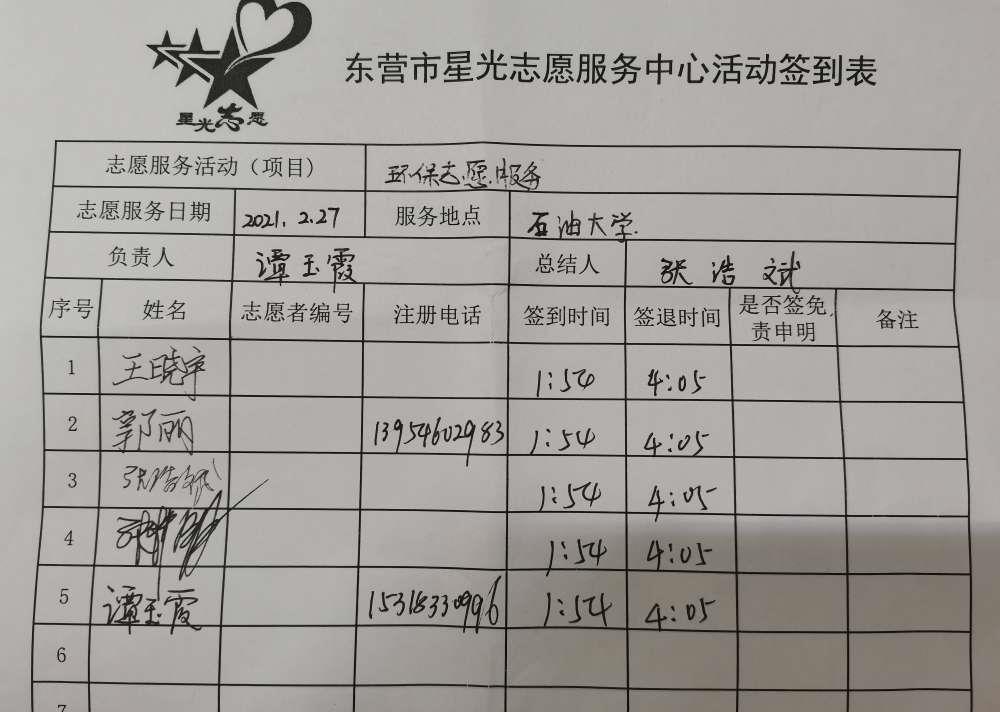 星光志愿
东营市星光志愿服务中心活动签到表
志愿服务活动（项目） 环保志愿服务
志愿服务日期 2021.2.27 服务地点 石油大学.
负责人 谭玉霞 总结人 张浩斌
序号 姓名 志愿者编号 注册电话 签到时间 签退时间 是否签免责申明 备注
1 王晓宇 1:54 4:05
2 郭丽 13954602983 1:54 4:05
3 张浩斌 1:54 4:05
4 1:54 4:05
5 谭玉霞 1:54 4:05
6
7